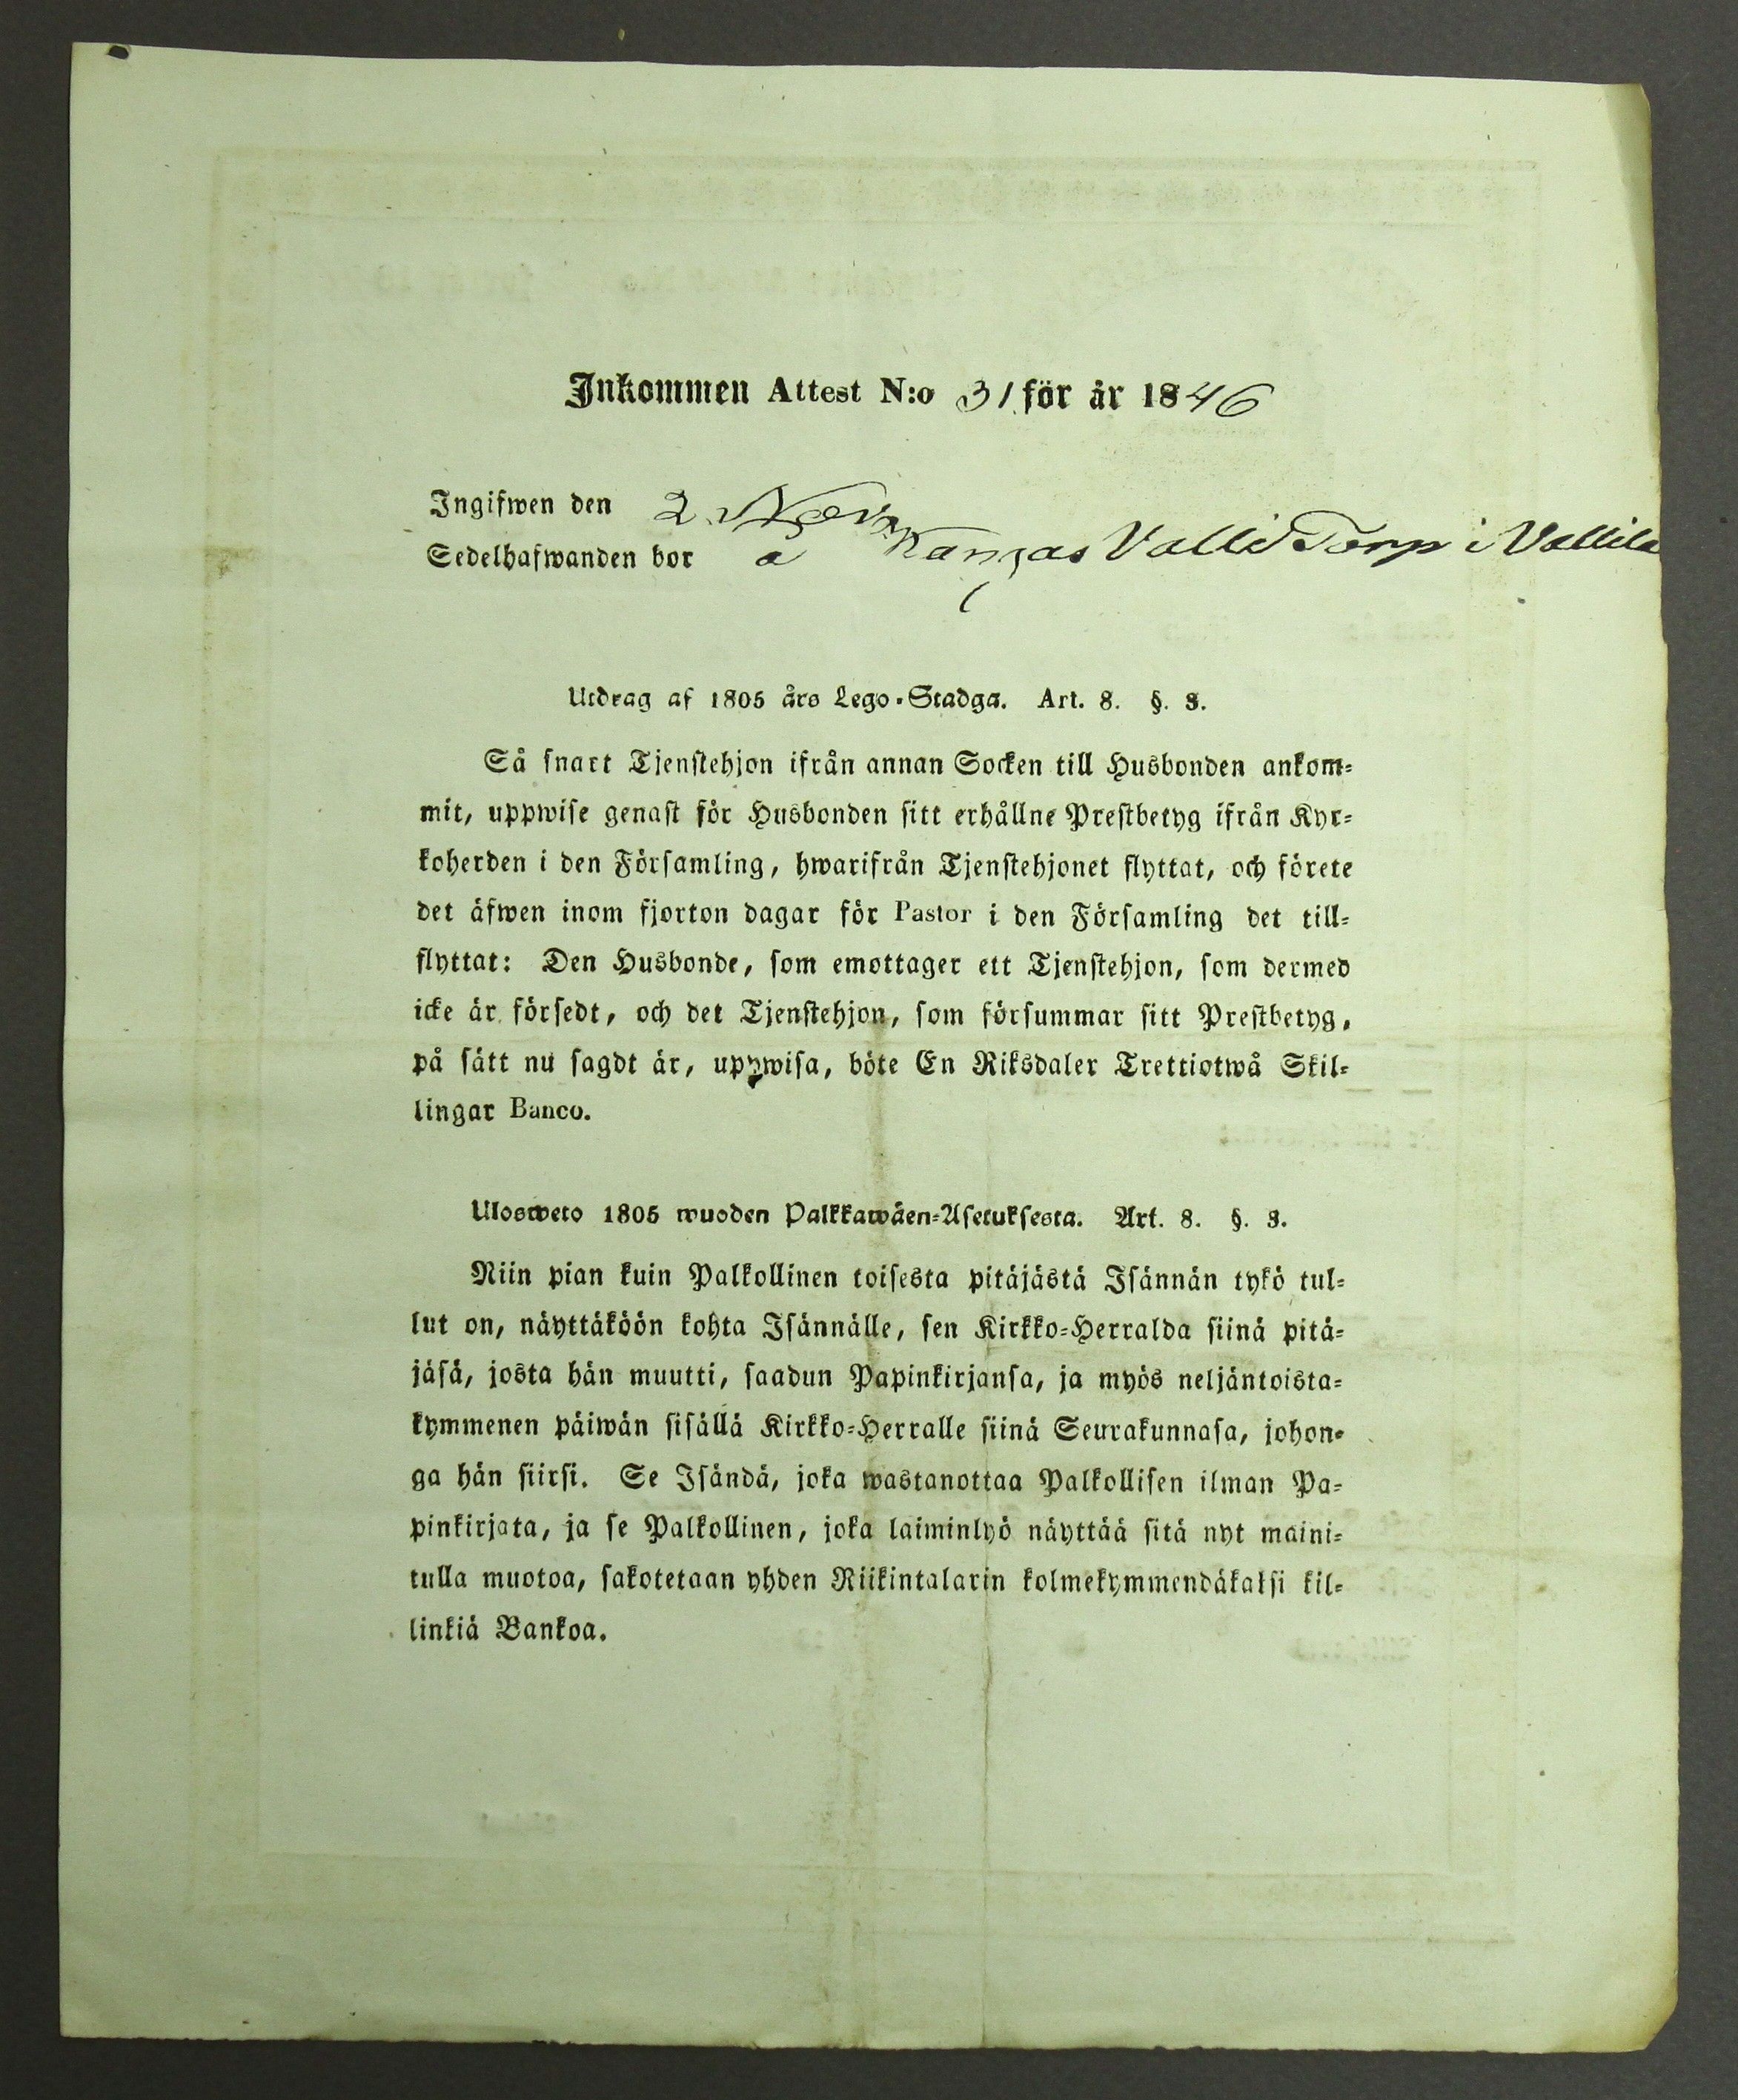 Inkommen Attest N:o 31 för år 1846
Ingifwen den 2 Nov:
Sedelhafwanden bor å Kangas Valli Torp i Vallila
Utdrag af 1805 års Lego-Stadga. Art. 8. §. 3.
Så snart Tjenstehjon ifrån annan Socken till Husbonden ankom-
mit, uppwise genast för Husbonden sitt erhållne Prestbetyg ifrån Kyr-
koherden i den Församling, hwarifrån Tjenstehjonet flyttat, och förete
det äfwen inom fjorton dagar för Pastor i den Församling det till-
flyttat: Den Husbonde, som emottager ett Tjenstehjon, som dermed
icke är försedt, och det Tjenstehjon, som försummar sitt Prestbetyg,
på sätt nu sagdt är, uppwisa, böte En Riksdaler Trettiotwå Skil-
lingar Banco.
Ulosweto 1805 wuoden Palkkawäen-Asetuksesta. Art. 8. §. 3.
Niin pian kuin Palkollinen toisesta pitäjästä Isännän tykö tul-
lut on, näyttäköön kohta Isännälle, sen Kirkko-Herralda siinä pitä-
jäsä, josta hän muutti, saadun Papinkirjansa, ja myös neljäntoista-
kymmenen päiwän sisällä Kirkko-Herralle siinä Seurakunnasa, johon-
ga hän siirsi. Se Isändä, joka wastanottaa Palkollisen ilman Pa-
pinkirjata, ja se Palkollinen, joka laiminlyö näyttää sitä nyt maini-
tulla muotoa, sakotetaan yhden Riikintalarin kolmekymmendäkaksi kil-
linkiä Bankoa.